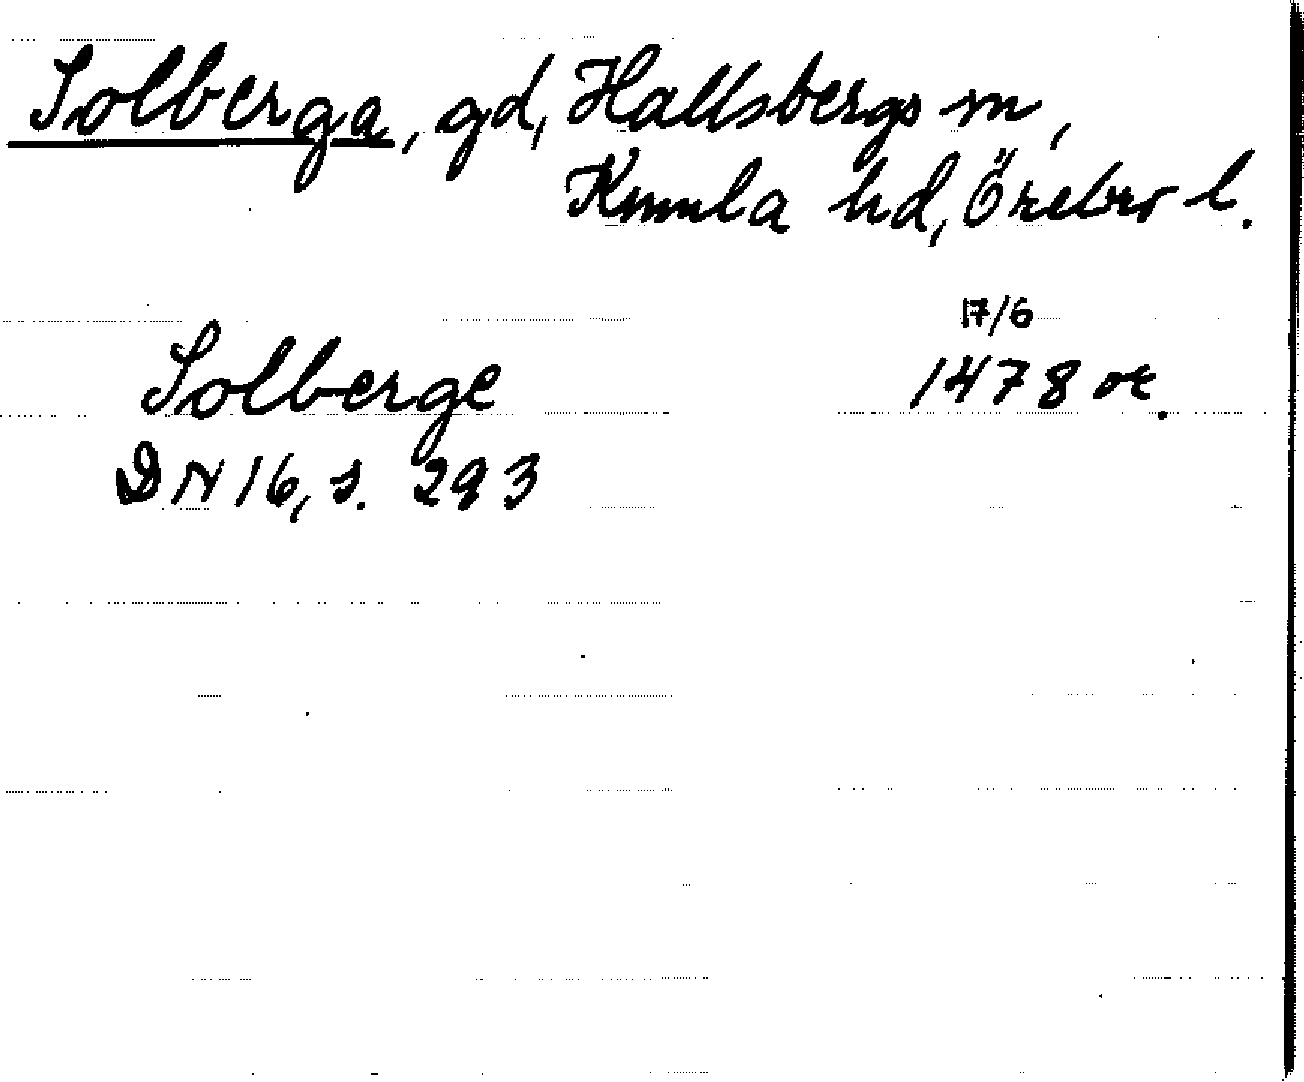 Solberga, gd, Hallsbergs sn,
Kumla hd, Örebro l.
17/6
Solberge 1478 or.
DN 16, s. 293